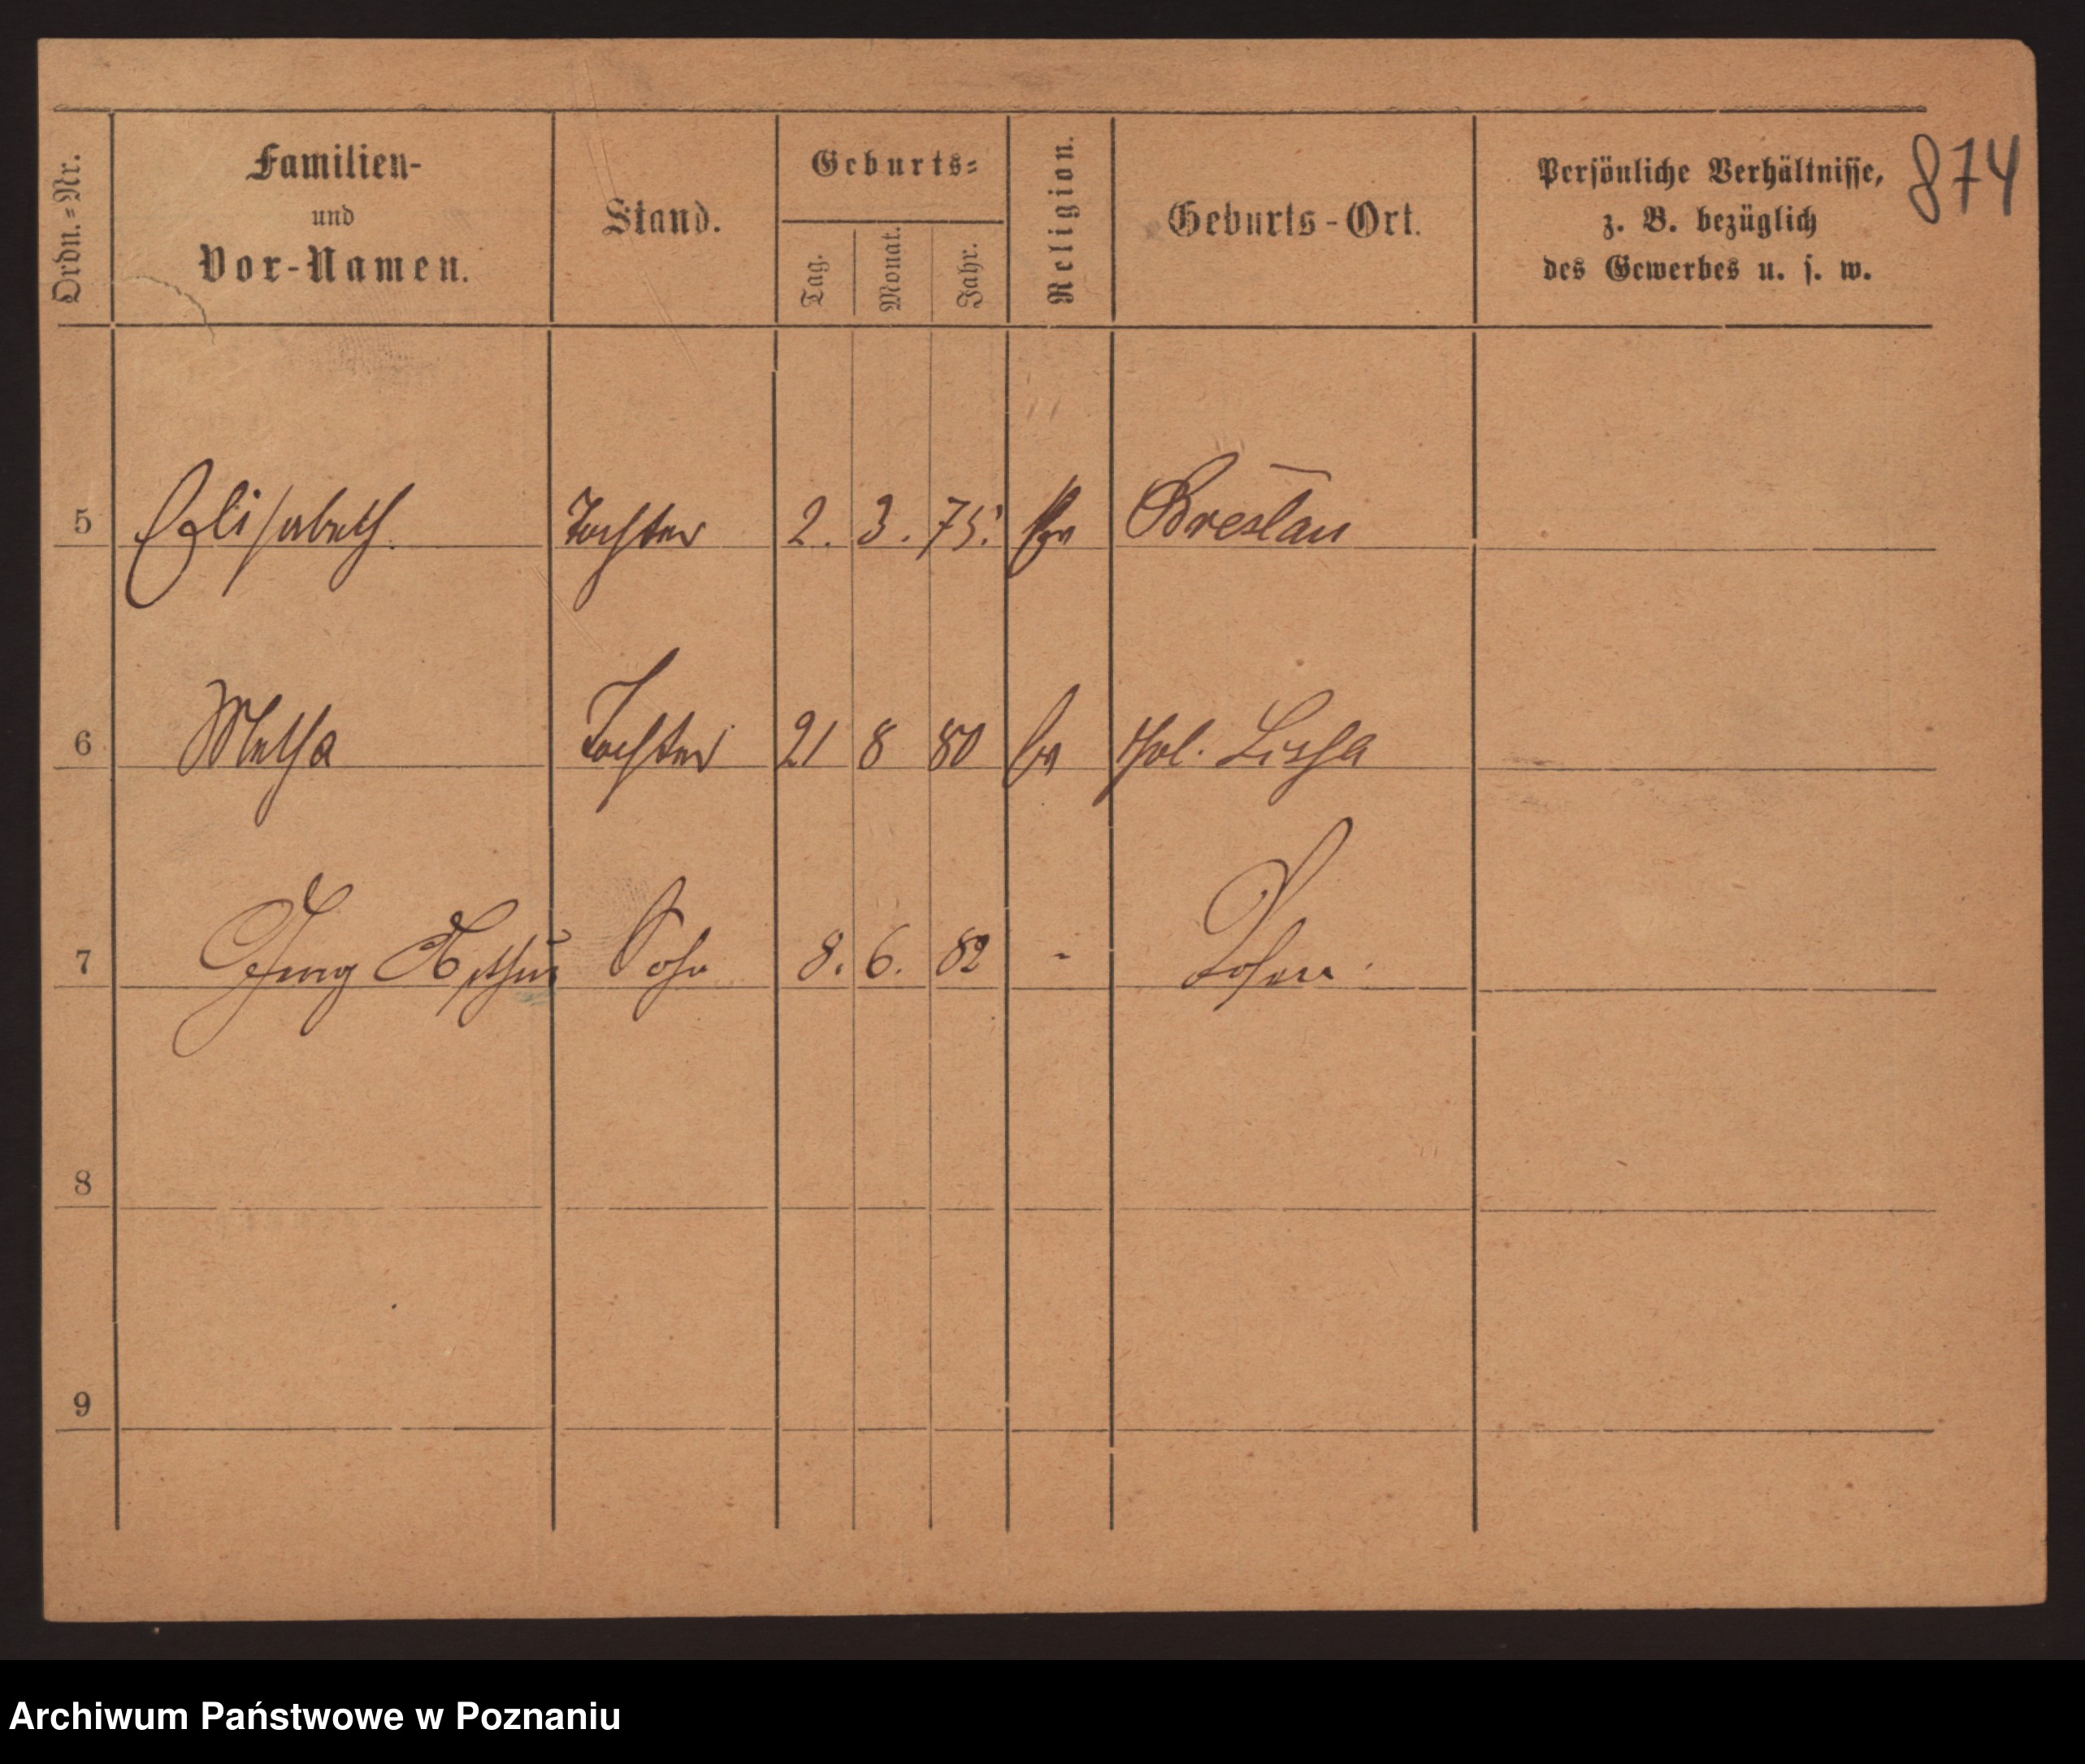 874
Ordn.=Nr.
Familien-
und
Vor-Namen.
Stand.
Geburts=
Tag.
Monat.
Jahr.
Religion.
Geburts-Ort.
Persönliche Verhältnisse,
z. B. bezüglich
des Gewerbes u. s. w.
5 Elisabeth. Tochter 2. 3. 75. Breslau
6 Metha Tochter 21 8 80 Lissa
7 Georg Arthur Sohn 8. 6. 82 - Posen.
8
9
Archiwum Państwowe w Poznaniu